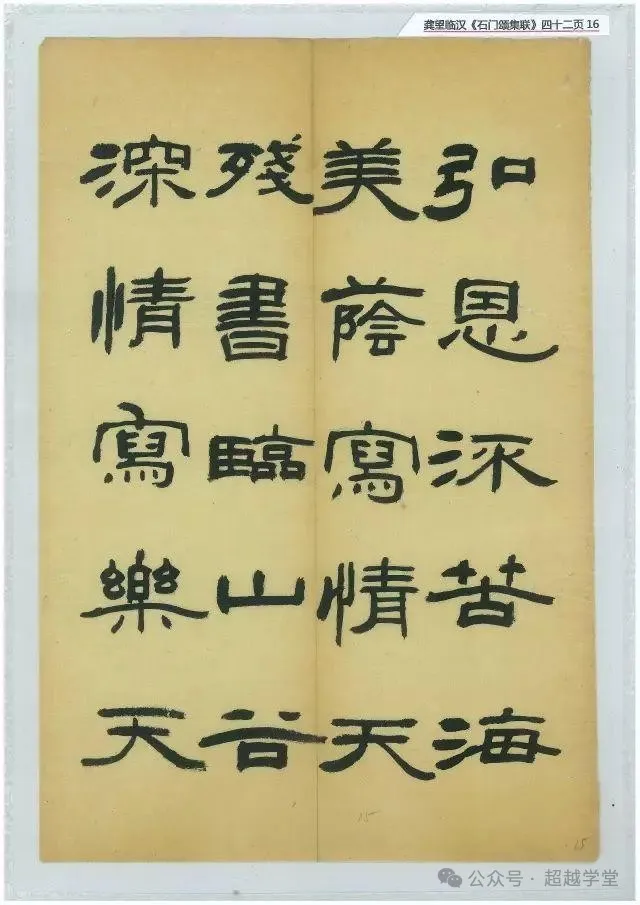 龚望临汉《石门颂集联》四十二页 16
弘恩苦海
美蔭寫情天
殘書臨山谷
深情寫樂天
15
15
公众号 · 超越学堂